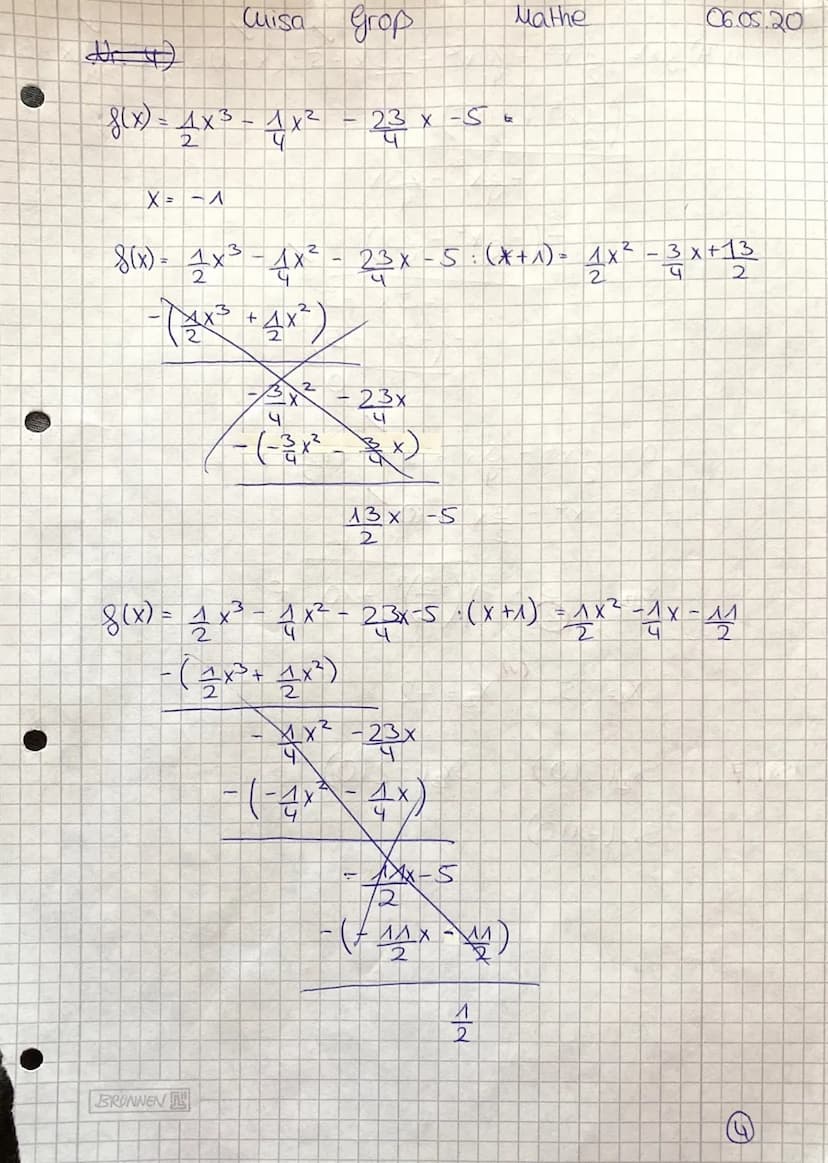 Luisa Groß Mathe 06.05.20
Nr. 4)
f(x) = 1/2 x³ - 1/4 x² - 23/4 x - 5
x = -1
f(x) = 1/2 x³ - 1/4 x² - 23/4 x - 5 : (x+1) = 1/2 x² - 3/4 x + 13/2
-(1/2 x³ + 1/2 x²)
- 3/4 x² - 23/4 x
-(-3/4 x² - 3/4 x)
13/2 x - 5
f(x) = 1/2 x³ - 1/4 x² - 23/4 x - 5 : (x+1) = 1/2 x² - 1/4 x - 11/2
-(1/2 x³ + 1/2 x²)
- 1/4 x² - 23/4 x
-(-1/4 x² - 1/4 x)
- 11/2 x - 5
-(-11/2 x - 11/2)
1/2
BRUNNEN
4